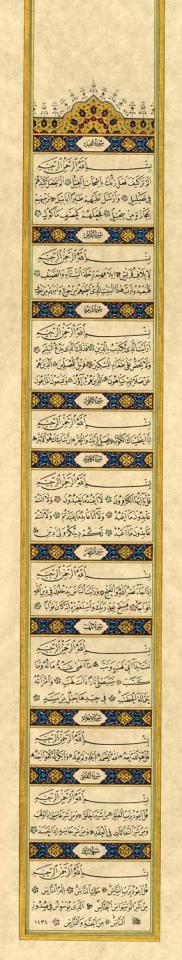 سورة الفيل
بِسْمِ اللَّهِ الرَّحْمَنِ الرَّحِيمِ
أَلَمْ تَرَ كَيْفَ فَعَلَ رَبُّكَ بِأَصْحَابِ الْفِيلِ أَلَمْ يَجْعَلْ كَيْدَهُمْ
فِي تَضْلِيلٍ وَأَرْسَلَ عَلَيْهِمْ طَيْرًا أَبَابِيلَ تَرْمِيهِمْ
بِحِجَارَةٍ مِنْ سِجِّيلٍ فَجَعَلَهُمْ كَعَصْفٍ مَأْكُولٍ
بِسْمِ اللَّهِ الرَّحْمَنِ الرَّحِيمِ
لِإِيلَافِ قُرَيْشٍ إِيلَافِهِمْ رِحْلَةَ الشِّتَاءِ وَالصَّيْفِ
فَلْيَعْبُدُوا رَبَّ هَذَا الْبَيْتِ الَّذِي أَطْعَمَهُمْ مِنْ جُوعٍ وَآمَنَهُمْ مِنْ خَوْفٍ
بِسْمِ اللَّهِ الرَّحْمَنِ الرَّحِيمِ
أَرَأَيْتَ الَّذِي يُكَذِّبُ بِالدِّينِ فَذَلِكَ الَّذِي يَدُعُّ الْيَتِيمَ
وَلَا يَحُضُّ عَلَى طَعَامِ الْمِسْكِينِ فَوَيْلٌ لِلْمُصَلِّينَ الَّذِينَ هُمْ
عَنْ صَلَاتِهِمْ سَاهُونَ الَّذِينَ هُمْ يُرَاءُونَ وَيَمْنَعُونَ الْمَاعُونَ
بِسْمِ اللَّهِ الرَّحْمَنِ الرَّحِيمِ
إِنَّا أَعْطَيْنَاكَ الْكَوْثَرَ فَصَلِّ لِرَبِّكَ وَانْحَرْ إِنَّ شَانِئَكَ هُوَ الْأَبْتَرُ
بِسْمِ اللَّهِ الرَّحْمَنِ الرَّحِيمِ
قُلْ يَا أَيُّهَا الْكَافِرُونَ لَا أَعْبُدُ مَا تَعْبُدُونَ وَلَا أَنْتُمْ
عَابِدُونَ مَا أَعْبُدُ وَلَا أَنَا عَابِدٌ مَا عَبَدْتُمْ وَلَا أَنْتُمْ
عَابِدُونَ مَا أَعْبُدُ لَكُمْ دِينُكُمْ وَلِيَ دِينِ
بِسْمِ اللَّهِ الرَّحْمَنِ الرَّحِيمِ
إِذَا جَاءَ نَصْرُ اللَّهِ وَالْفَتْحُ وَرَأَيْتَ النَّاسَ يَدْخُلُونَ فِي دِينِ اللَّهِ
أَفْوَاجًا فَسَبِّحْ بِحَمْدِ رَبِّكَ وَاسْتَغْفِرْهُ إِنَّهُ كَانَ تَوَّابًا
بِسْمِ اللَّهِ الرَّحْمَنِ الرَّحِيمِ
تَبَّتْ يَدَا أَبِي لَهَبٍ وَتَبَّ مَا أَغْنَى عَنْهُ مَالُهُ وَمَا
كَسَبَ سَيَصْلَى نَارًا ذَاتَ لَهَبٍ وَامْرَأَتُهُ
حَمَّالَةَ الْحَطَبِ فِي جِيدِهَا حَبْلٌ مِنْ مَسَدٍ
بِسْمِ اللَّهِ الرَّحْمَنِ الرَّحِيمِ
قُلْ هُوَ اللَّهُ أَحَدٌ اللَّهُ الصَّمَدُ لَمْ يَلِدْ وَلَمْ يُولَدْ وَلَمْ يَكُنْ لَهُ كُفُوًا أَحَدٌ
سورة الفلق
بِسْمِ اللَّهِ الرَّحْمَنِ الرَّحِيمِ
قُلْ أَعُوذُ بِرَبِّ الْفَلَقِ مِنْ شَرِّ مَا خَلَقَ وَمِنْ شَرِّ غَاسِقٍ إِذَا وَقَبَ
وَمِنْ شَرِّ النَّفَّاثَاتِ فِي الْعُقَدِ وَمِنْ شَرِّ حَاسِدٍ إِذَا حَسَدَ
بِسْمِ اللَّهِ الرَّحْمَنِ الرَّحِيمِ
قُلْ أَعُوذُ بِرَبِّ النَّاسِ مَلِكِ النَّاسِ إِلَهِ النَّاسِ
مِنْ شَرِّ الْوَسْوَاسِ الْخَنَّاسِ الَّذِي يُوَسْوِسُ فِي صُدُورِ
النَّاسِ مِنَ الْجِنَّةِ وَالنَّاسِ